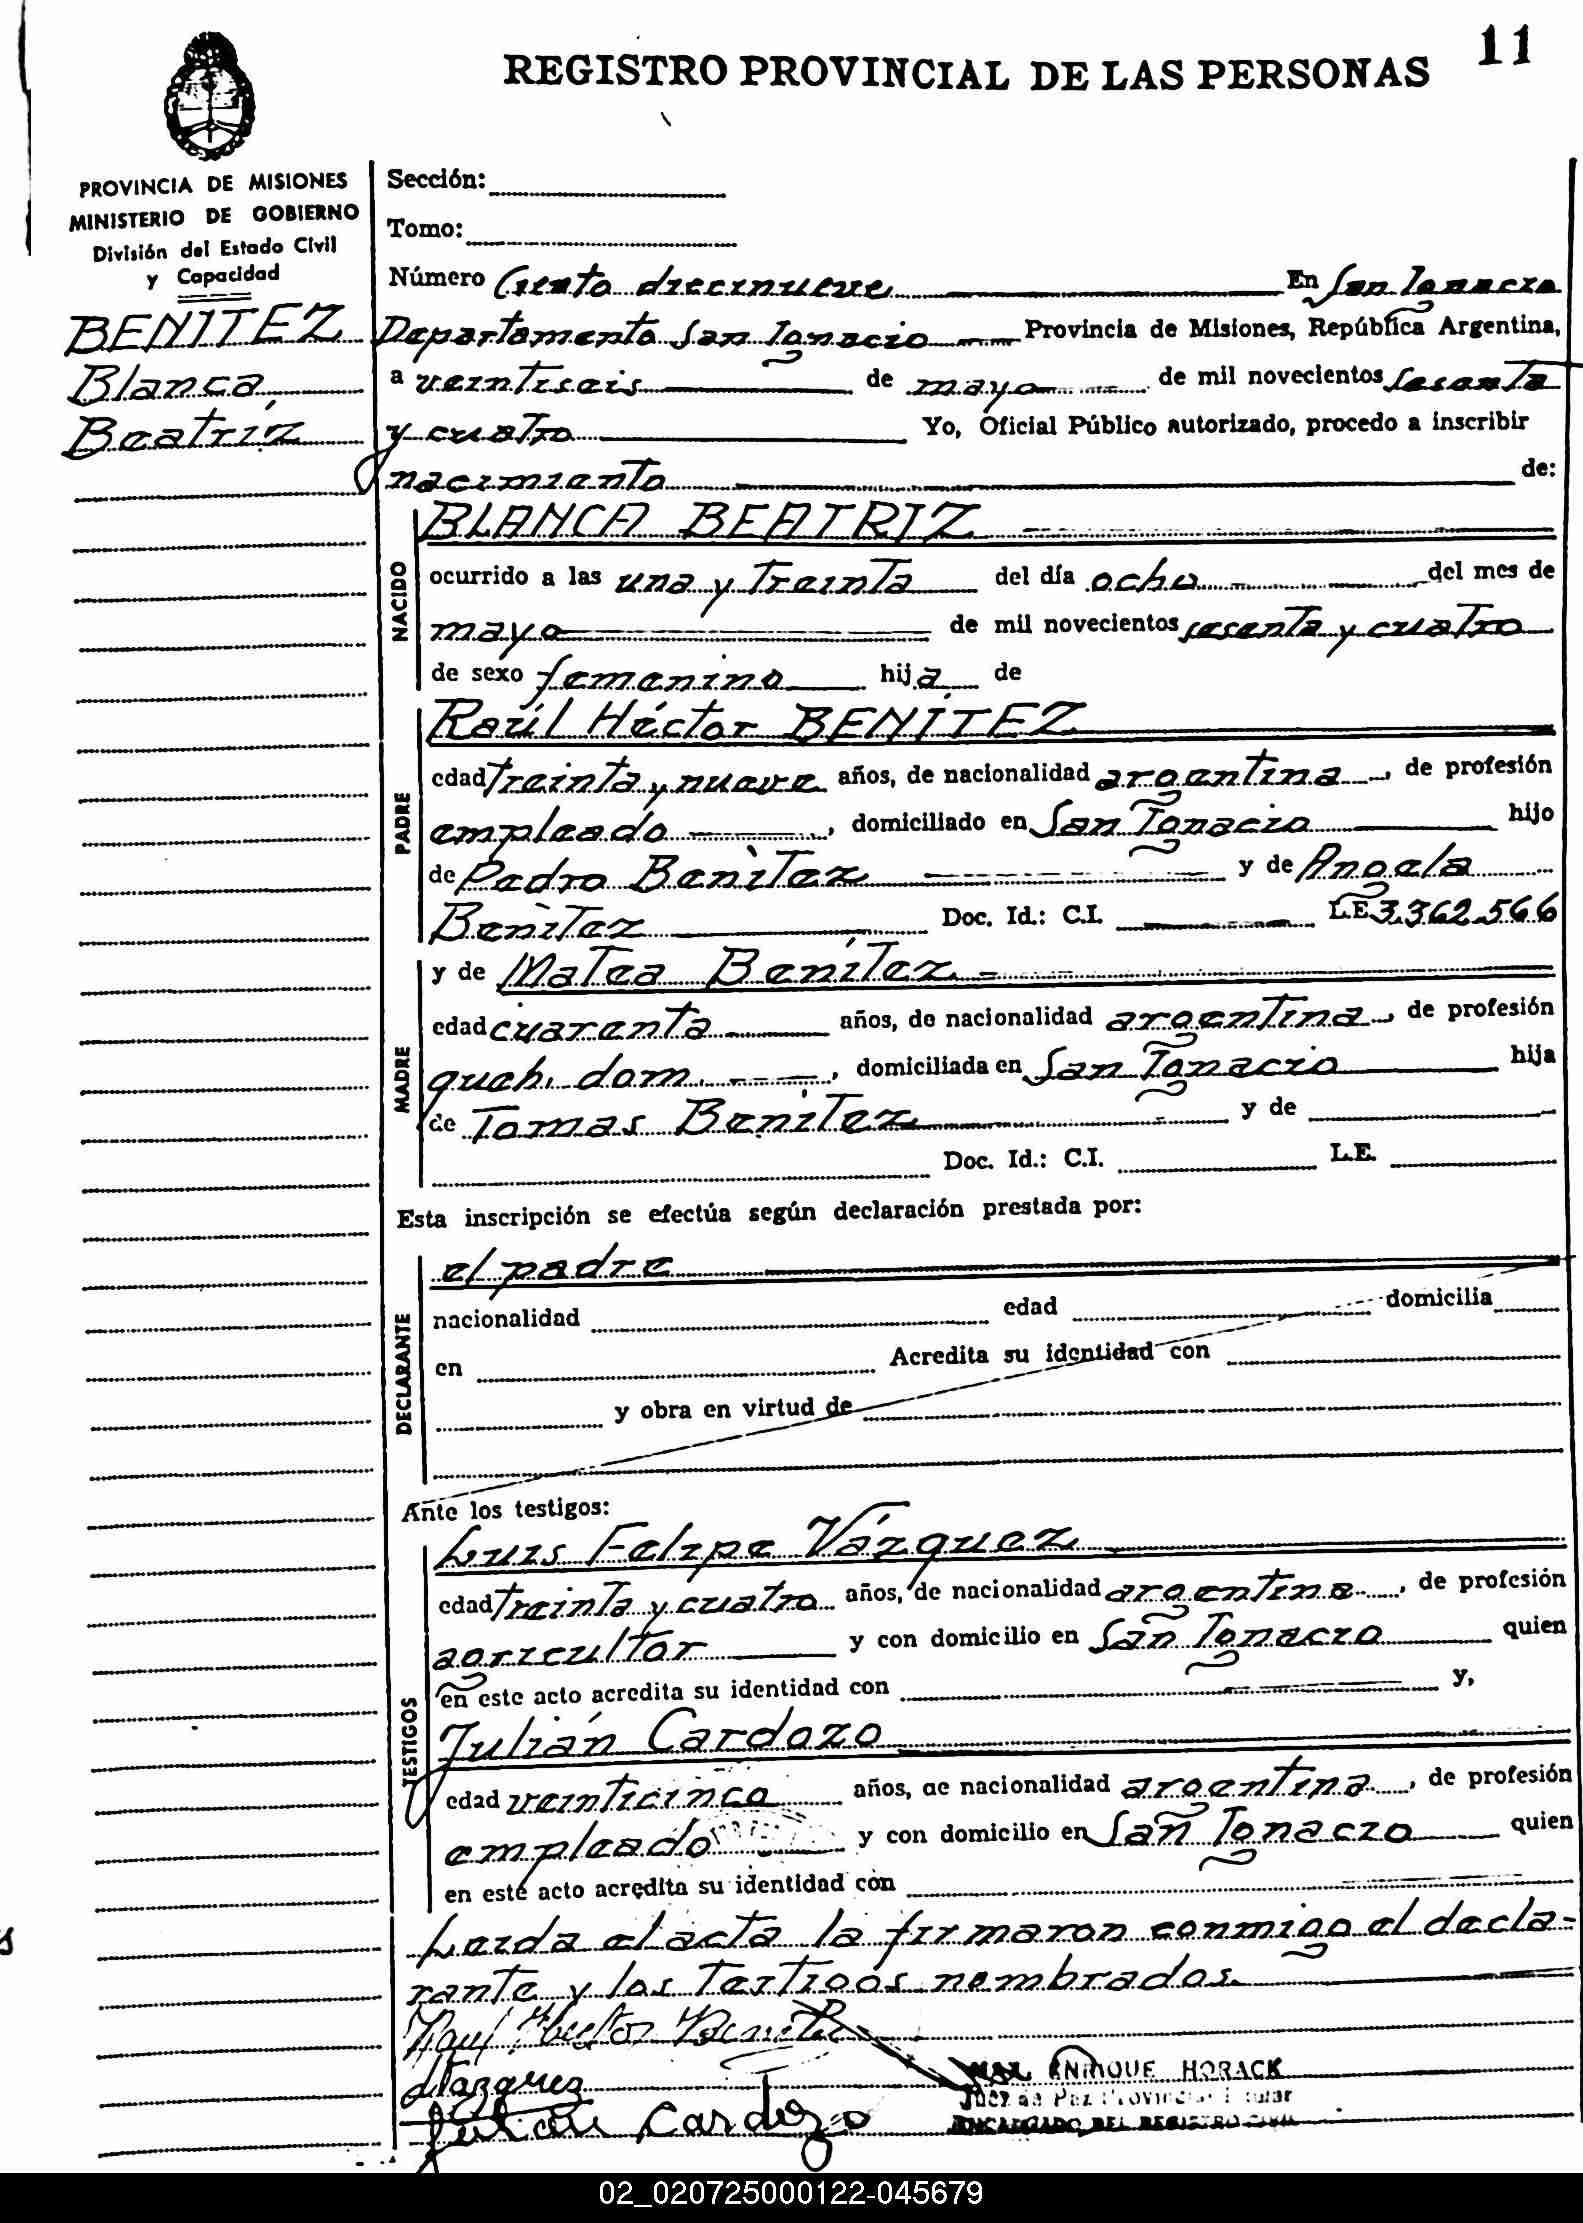 11
REGISTRO PROVINCIAL DE LAS PERSONAS
PROVINCIA DE MISIONES
MINISTERIO DE GOBIERNO
División del Estado Civil
y Capacidad
BENITEZ
Blanca
Beatríz
Sección:
Tomo:
Número Ciento diecinueve En San Ignacio
Departamento San Ignacio Provincia de Misiones, República Argentina,
a veintiseis de mayo de mil novecientos sesenta
y cuatro Yo, Oficial Público autorizado, procedo a inscribir
nacimiento de:
NACIDO
BLANCA BEATRIZ
ocurrido a las una y treinta del día ocho del mes de
mayo de mil novecientos sesenta y cuatro
de sexo femenino hija de
PADRE
Raúl Héctor BENÍTEZ
edad treinta y nueve años, de nacionalidad argentina, de profesión
empleado, domiciliado en San Ignacio hijo
de Pedro Benítez y de Angela
Benítez Doc. Id.: C.I. L.E. 3.362.566
MADRE
y de Matea Benítez
edad cuarenta años, de nacionalidad argentina, de profesión
queh. dom., domiciliada en San Ignacio hija
de Tomas Benítez y de
Doc. Id.: C.I. L.E.
Esta inscripción se efectúa según declaración prestada por:
DECLARANTE
el padre
nacionalidad edad domicilia
en Acredita su identidad con
y obra en virtud de
Ante los testigos:
TESTIGOS
Luis Felipe Vázquez
edad treinta y cuatro años, de nacionalidad argentina, de profesión
agricultor y con domicilio en San Ignacio quien
en este acto acredita su identidad con y,
Julián Cardozo
edad veinticinco años, de nacionalidad argentina, de profesión
empleado y con domicilio en San Ignacio quien
en este acto acredita su identidad con
Leida el acta la firmaron conmigo el decla-
rante y los testigos nombrados.
Raul Hector Benitez
Vazquez
Julian Cardozo
ENRIQUE HORACK
Juez de Paz Provincial Titular
ENCARGADO DEL REGISTRO CIVIL
02_020725000122-045679